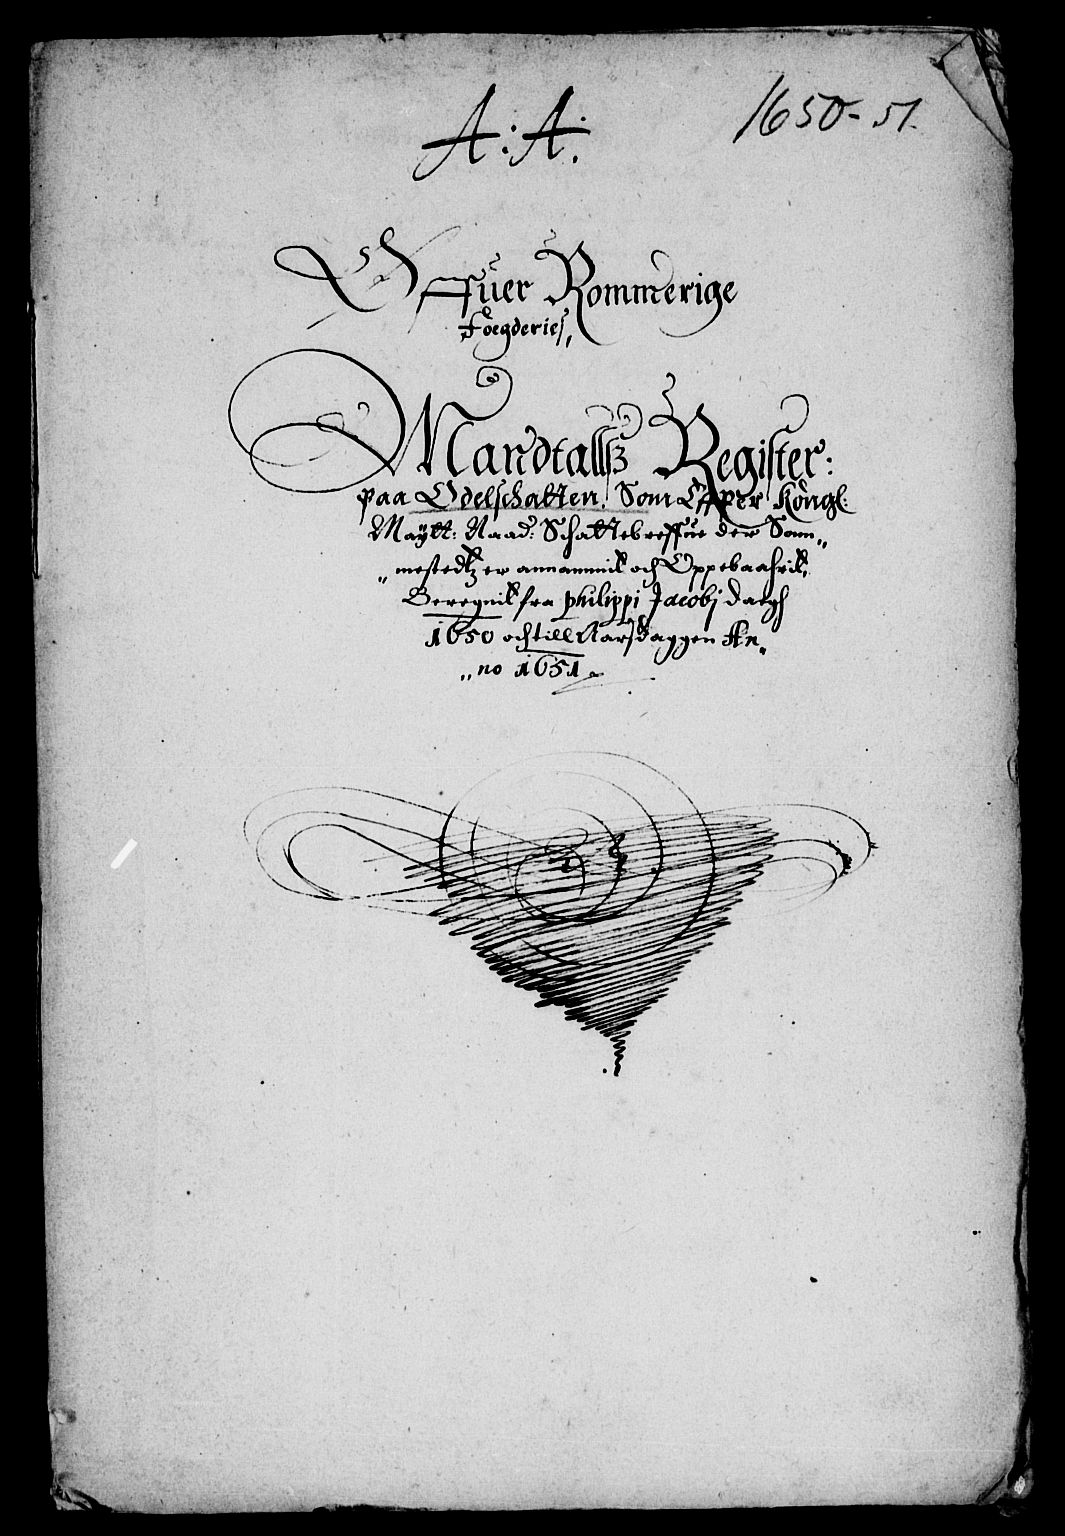 A: A:
1650-51.
Offuer Rommerige
Foegderies,
Mandtallsz Register:
paa Odelschatten. Som Effter Köngl:
Maÿtt: Naad: Schattebreffue der Som„
„mestedtz er annammit och Oppebaahrit,
Beregnit fra philippi Jacobj daegh
1650 och till Aarsdaggen An„
„no 1651.